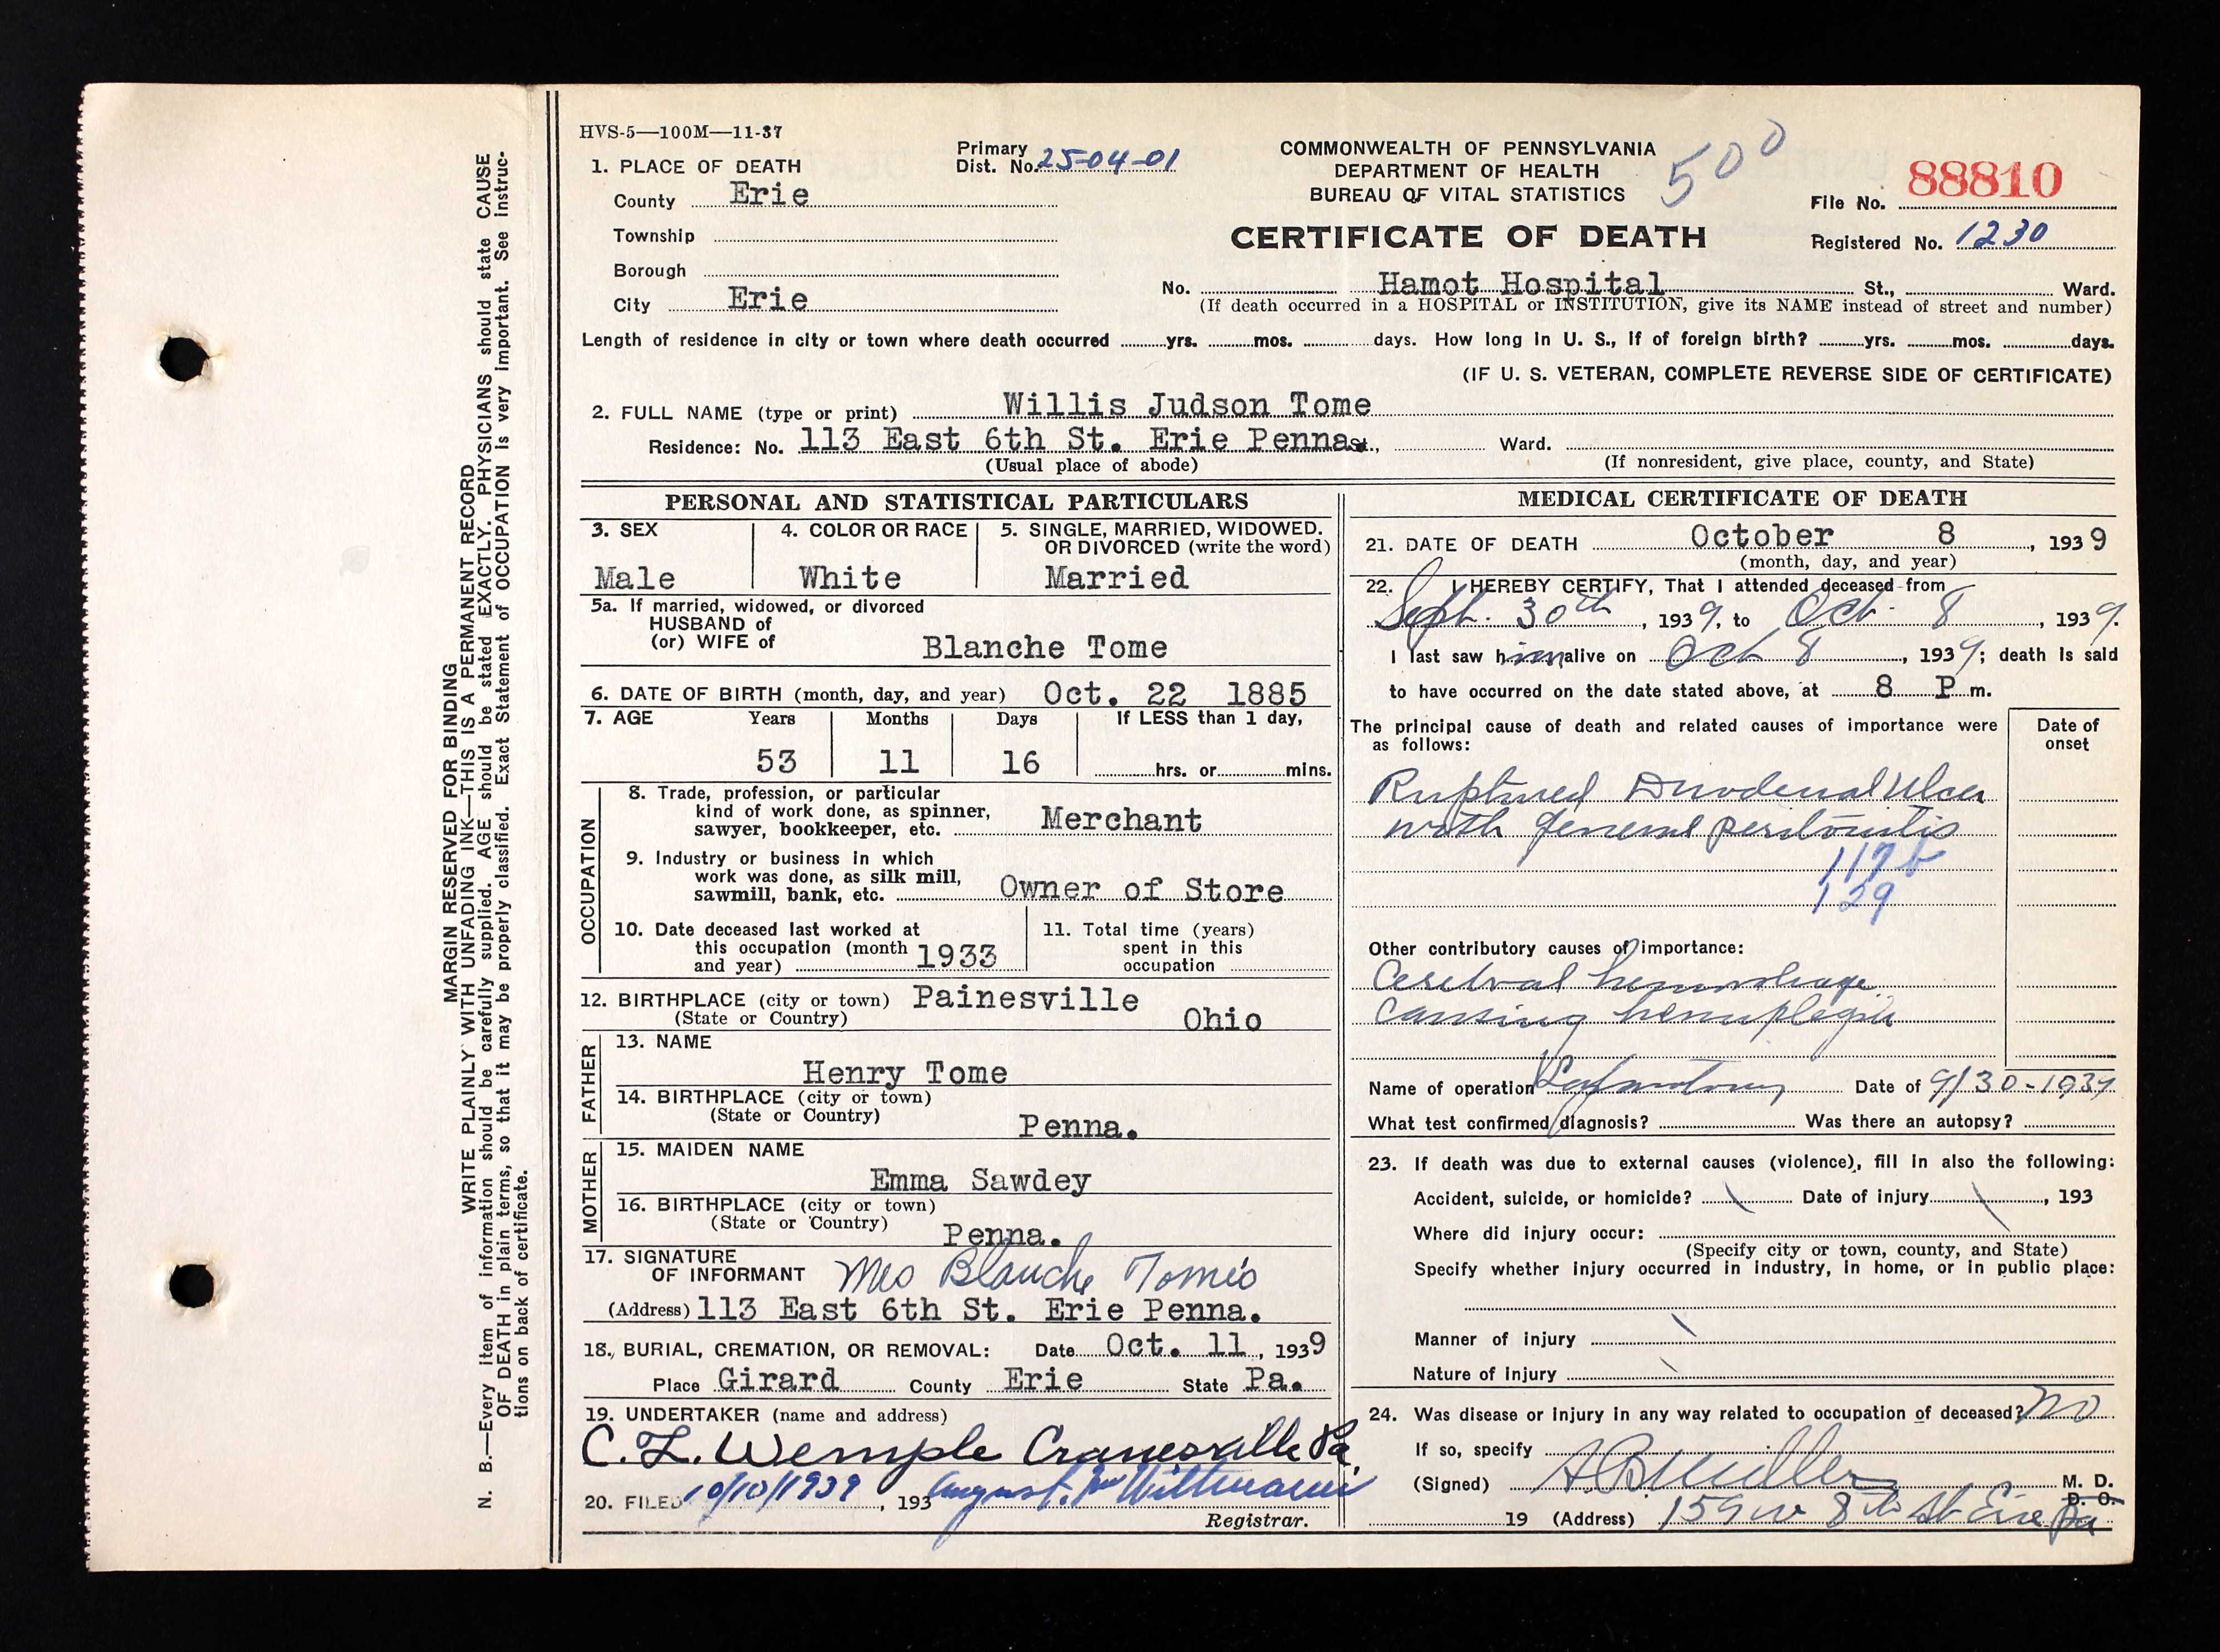 HVS-5—100M—11-37
1. PLACE OF DEATH
County Erie
Township
Borough
City Erie
Primary
Dist. No. 25-04-01
COMMONWEALTH OF PENNSYLVANIA
DEPARTMENT OF HEALTH
BUREAU OF VITAL STATISTICS
500
CERTIFICATE OF DEATH
File No. 88810
Registered No. 1230
No. Hamot Hospital St., Ward.
(If death occurred in a HOSPITAL or INSTITUTION, give its NAME instead of street and number)
Length of residence in city or town where death occurred yrs. mos. days. How long in U. S., if of foreign birth? yrs. mos. days.
(IF U. S. VETERAN, COMPLETE REVERSE SIDE OF CERTIFICATE)
2. FULL NAME (type or print) Willis Judson Tome
Residence: No. 113 East 6th St. Erie Penna. St., Ward.
(Usual place of abode) (If nonresident, give place, county, and State)
PERSONAL AND STATISTICAL PARTICULARS
3. SEX
Male
4. COLOR OR RACE
White
5. SINGLE, MARRIED, WIDOWED.
OR DIVORCED (write the word)
Married
5a. If married, widowed, or divorced
HUSBAND of
(or) WIFE of Blanche Tome
6. DATE OF BIRTH (month, day, and year) Oct. 22 1885
7. AGE Years Months Days If LESS than 1 day,
53 11 16 hrs. or mins.
OCCUPATION
8. Trade, profession, or particular
kind of work done, as spinner,
sawyer, bookkeeper, etc. Merchant
9. Industry or business in which
work was done, as silk mill,
sawmill, bank, etc. Owner of Store
10. Date deceased last worked at
this occupation (month
and year) 1933
11. Total time (years)
spent in this
occupation
12. BIRTHPLACE (city or town) Painesville
(State or Country) Ohio
FATHER
13. NAME
Henry Tome
14. BIRTHPLACE (city or town)
(State or Country) Penna.
MOTHER
15. MAIDEN NAME
Emma Sawdey
16. BIRTHPLACE (city or town)
(State or Country) Penna.
17. SIGNATURE
OF INFORMANT Mrs Blanche Tome
(Address) 113 East 6th St. Erie Penna.
18. BURIAL, CREMATION, OR REMOVAL: Date Oct. 11, 1939
Place Girard County Erie State Pa.
19. UNDERTAKER (name and address)
C. L. Wemple Cranesville Pa.
20. FILED 10/10/1939, 193 August. Wittmann
Registrar.
MEDICAL CERTIFICATE OF DEATH
21. DATE OF DEATH October 8, 1939
(month, day, and year)
22. I HEREBY CERTIFY, That I attended deceased from
Sept. 30th, 1939, to Oct. 8, 1939.
I last saw him alive on Oct 8, 1939; death is said
to have occurred on the date stated above, at 8 P m.
The principal cause of death and related causes of importance were
as follows:
Date of
onset
Ruptured Duodenal Ulcer
with general peritonitis
117b
129
Other contributory causes of importance:
Cerebral hemorrhage
causing hemiplegia
Name of operation Laparotomy Date of 9/30-1939
What test confirmed diagnosis? Was there an autopsy?
23. If death was due to external causes (violence), fill in also the following:
Accident, suicide, or homicide? Date of injury , 193
Where did injury occur:
(Specify city or town, county, and State)
Specify whether injury occurred in industry, in home, or in public place:
Manner of injury
Nature of injury
24. Was disease or injury in any way related to occupation of deceased? no
If so, specify
(Signed) A B Miller M. D.
D. O.
19 (Address) 159 w 8th St Erie Pa
MARGIN RESERVED FOR BINDING
WRITE PLAINLY WITH UNFADING INK—THIS IS A PERMANENT RECORD
N. B.—Every item of information should be carefully supplied. AGE should be stated EXACTLY. PHYSICIANS should state CAUSE
OF DEATH in plain terms, so that it may be properly classified. Exact Statement of OCCUPATION is very important. See instruc-
tions on back of certificate.